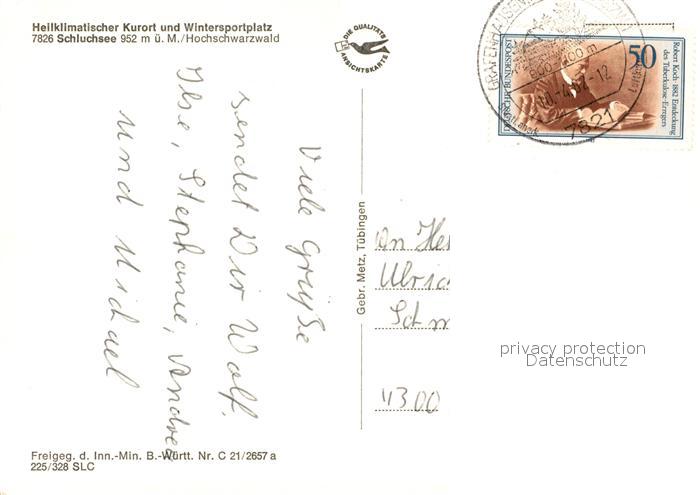 Heilklimatischer Kurort und Wintersportplatz
7826 Schluchsee 952 m ü. M./Hochschwarzwald
DIE QUALITÄTS
ANSICHTSKARTE
Viele Grüße
sendet Dir Wolf,
Ilse, Stephanie, Andrea
und Michael
Gebr. Metz, Tübingen
50
Robert Koch 1882 Entdeckung
des Tuberkulose-Erregers
DEUTSCHE BUNDESPOST
7821
An He
Ulric
Schm
4300
privacy protection
by Dumulier
Freigeg. d. Inn.-Min. B.-Württ. Nr. C 21/2657 a
225/328 SLC